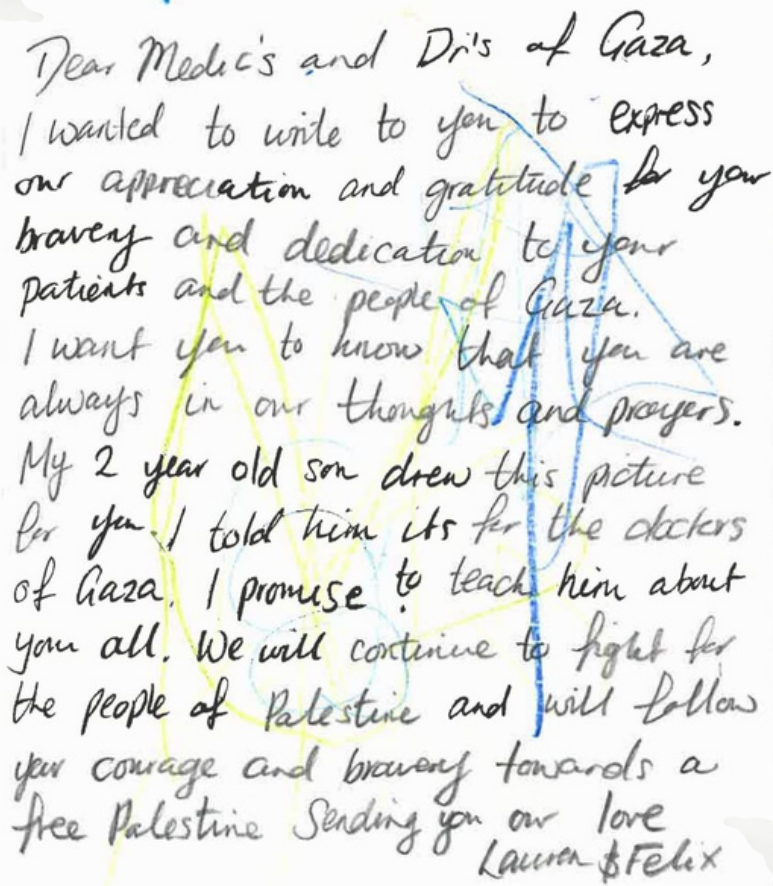 Dear Medic's and Dr's of Gaza,
I wanted to write to you to express
our appreciation and gratitude for your
bravery and dedication to your
patients and the people of Gaza.
I want you to know that you are
always in our thoughts and prayers.
My 2 year old son drew this picture
for you. I told him its for the doctors
of Gaza. I promise to teach him about
you all. We will continue to fight for
the people of Palestine and will follow
your courage and bravery towards a
free Palestine Sending you our love
Lauren & Felix